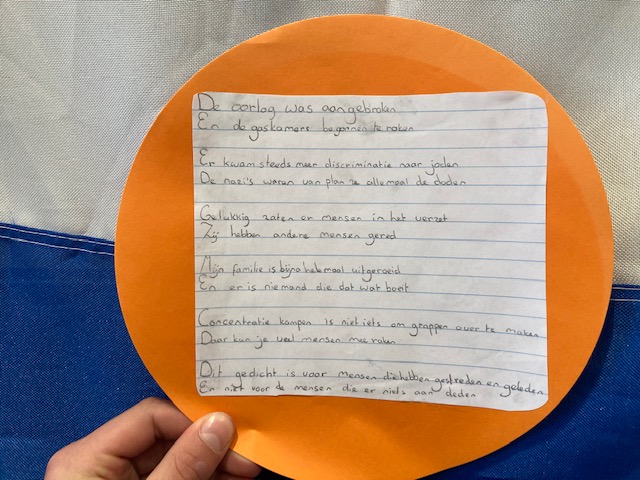 De oorlog was aangebroken
En de gaskamers begonnen te roken
Er kwam steeds meer discriminatie naar joden
De nazi's waren van plan ze allemaal de doden
Gelukkig zaten er mensen in het verzet
Zij hebben andere mensen gered
Mijn familie is bijna helemaal uitgeroeid
En er is niemand die dat wat boeit
Concentratie kampen is niet iets om grappen over te maken
Daar kan je veel mensen mee raken
Dit gedicht is voor mensen die hebben gestreden en geleden
En niet voor de mensen die er niets aan deden